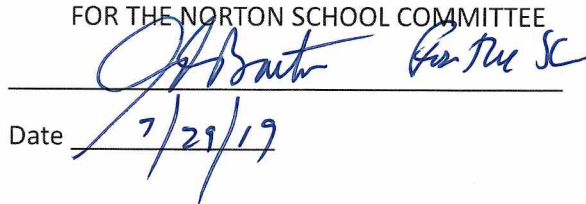 FOR THE NORTON SCHOOL COMMITTEE
For the SC
Date 7/29/19